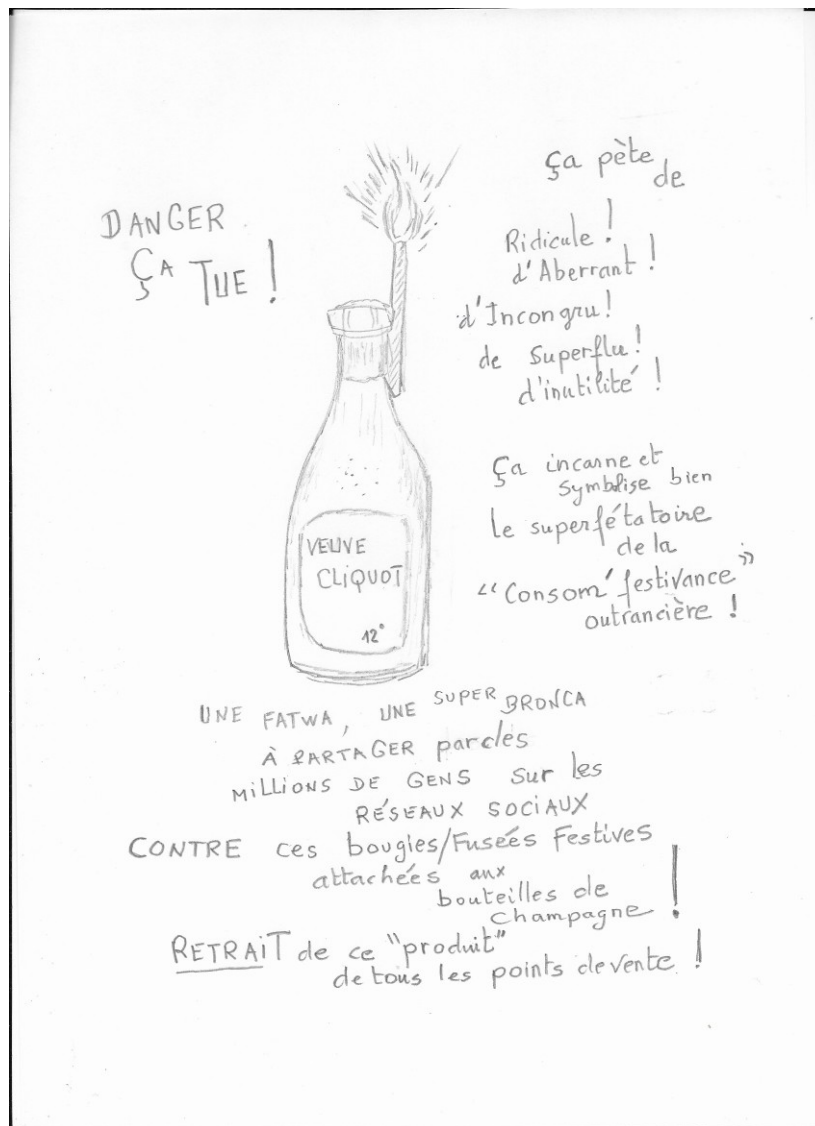 DANGER
ÇA TUE !
ça pète
de
Ridicule !
d'Aberrant !
d'Incongru !
de Superflu !
d'inutilité !
Ça incarne et
symblise bien
le superfétatoire
de la
"Consom'festivance"
outrancière !
VEUVE
CLIQUOT
12°
UNE FATWA, UNE SUPER BRONCA
À PARTAGER par des
MILLIONS DE GENS sur les
RÉSEAUX SOCIAUX
CONTRE ces bougies/Fusées Festives
attachées aux
bouteilles de
Champagne !
RETRAIT de ce "produit"
de tous les points de vente !